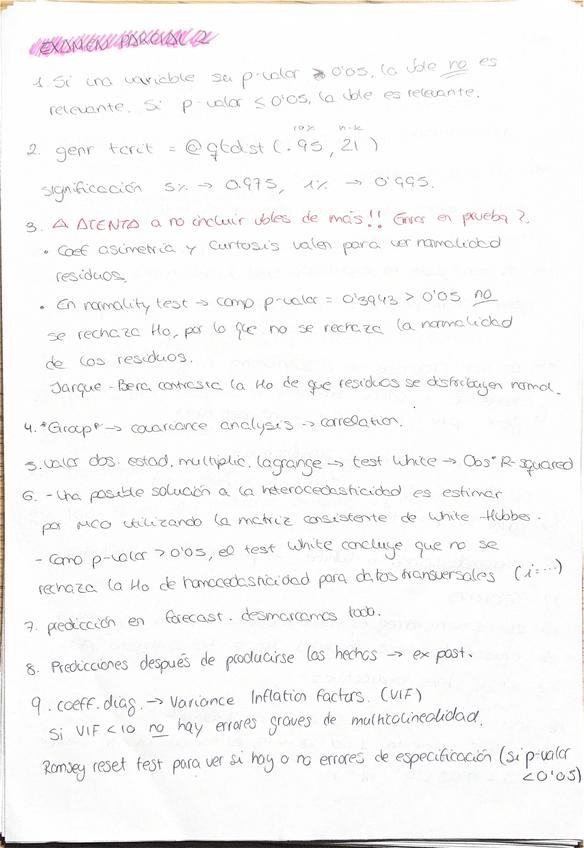 EXAMEN PARCIAL 2
1. Si una variable su p-valor > 0'05, la vble no es
relevante. Si p-valor ≤ 0'05, la vble es relevante.
10% n-k
2. genr tcrit = @qtdist (.95, 21)
significación 5% → 0.975, 1% → 0'995.
3. ⚠ ATENTA a no incluir vbles de más!! Error en prueba 2.
• Coef asimetría y Curtosis valen para ver normalidad
residuos.
• En normality test → como p-valor = 0'3943 > 0'05 no
se rechaza Ho, por lo que no se rechaza la normalidad
de los residuos.
Jarque-Bera contrasta la Ho de que residuos se distribuyen normal.
4. "Group" → covariance analysis → correlation.
5. valor obs. estad. multiplic. lagrange → test White → Obs* R-squared
6. - Una posible solución a la heterocedasticidad es estimar
por MCO utilizando la matriz consistente de White-Hubber.
- Como p-valor > 0'05, el test White concluye que no se
rechaza la Ho de homocedasticidad para datos transversales (i=...)
7. predicción en forecast. desmarcamos todo.
8. Predicciones después de producirse los hechos → ex post.
9. coeff. diag. → Variance Inflation factors. (VIF)
Si VIF < 10 no hay errores graves de multicolinealidad.
Ramsey reset test para ver si hay o no errores de especificación (si p-valor
< 0'05)